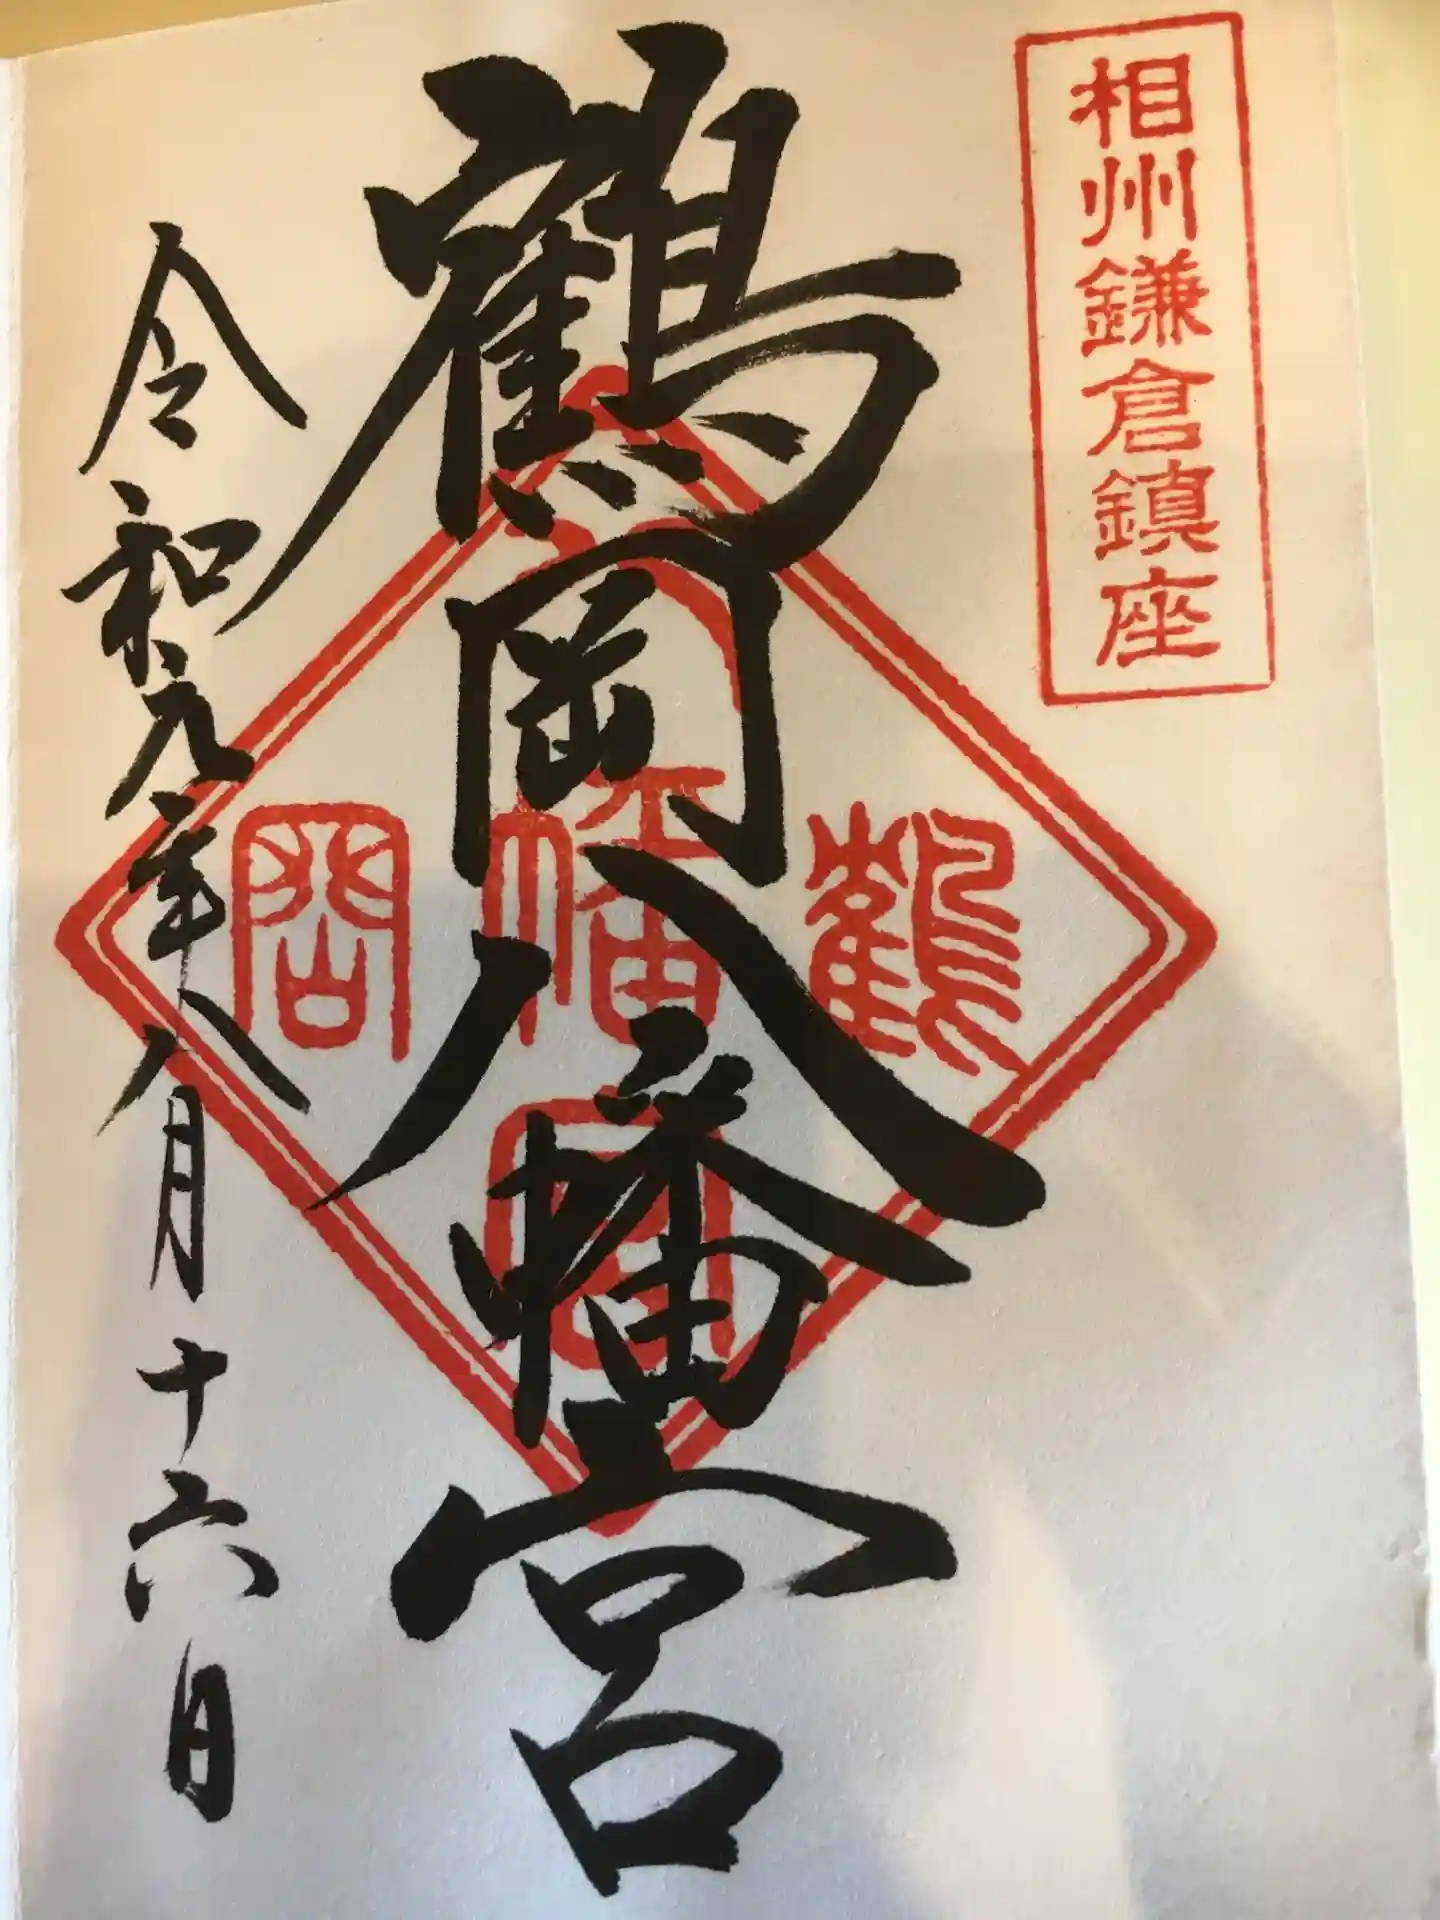 相州鎌倉鎮座
鶴岡八幡宮
八
鶴
幡
岡
宮
令和元年八月十六日